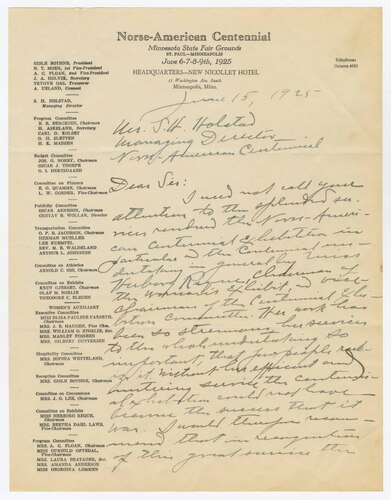 Norse-American Centennial
Minnesota State Fair Grounds
ST. PAUL—MINNEAPOLIS
June 6-7-8-9th, 1925
HEADQUARTERS—NEW NICOLLET HOTEL
11 Washington Ave. South
Minneapolis, Minn.
Telephone
Geneva 4601
GISLE BOTHNE, President
N. T. MOEN, 1st Vice-President
A. C. FLOAN, 2nd Vice President
J. A. HOLVIK, Secretary
TRYGVE OAS, Treasurer
A. UELAND, Counsel
S. H. HOLSTAD,
Managing Director
Program Committee
B. E. BERGESEN, Chairman
H. ASKELAND, Secretary
CARL D. KOLSET
O. H. SLETTEN
H. K. MADSEN
Budget Committee
JOS. G. NORBY, Chairman
OSCAR J. THORPE
O. I. HERTSGAARD
Committee on Finance
E. G. QUAMME, Chairman
L. W. GORDER, Vice-Chairman
Publicity Committee
OSCAR ARNESON, Chairman
GUSTAV B. WOLLAN, Director
Transportation Committee
O. P. B. JACOBSON, Chairman
HERMAN MUELLER
LEE KUEMPEL
REV. M. E. WALDELAND
ARTHUR L. JOHNSTON
Committee on Athletics
ARNOLD C. OSS, Chairman
Committee on Exhibits
KNUT GJERSET, Chairman
OLAF M. NORLIE
THEODORE C. BLEGEN
WOMEN'S AUXILIARY
Executive Committee
MISS ELISA PAULINE FARSETH, Chairman
MRS. J. E. HAUGEN, Vice Chm.
MRS. WILLIAM O. STORLIE, Sec.
MRS. MANLEY FOSSEEN
MRS. GILBERT GUTTERSEN
Hospitality Committee
MRS. SOPHIA WETTELAND, Chairman
Reception Committee
MRS. GISLE BOTHNE, Chairman
Committee on Concessions
MRS. J. O. LEE, Chairman
Committee on Exhibits
MISS HERBORG REQUE, Chairman
MRS. BERTHA DAHL LAWS, Vice-Chairman
Program Committee
MRS. A. C. FLOAN, Chairman
MISS GUNHILD OFTEDAL, Vice-Chairman
MRS. LAURA BRATAGER, Sec.
MRS. AMANDA ANDERSON
MISS GEORGINA LOMMEN
June 15, 1925
Mr. S. H. Holstad
Managing Director
Norse-American Centennial
Dear Sir:
I need not call your
attention to the splendid ser-
vices rendered the Norse-Ameri-
can Centennial Exhibition in
particular & the Centennial un-
dertaking in general by Miss
Herborg Reque, chairman of
the Women's Exhibit, and vice-
chairman of the Centennial Exhi-
bition Committee. Her work has
been so strenuous, her services
to the whole undertaking so
important, that few people real-
ize it. Without her efficient and
untiring service the centenni-
al exhibition could not have
become the success that it
was. I would therefore recom-
mend that in recognition
of this great service the